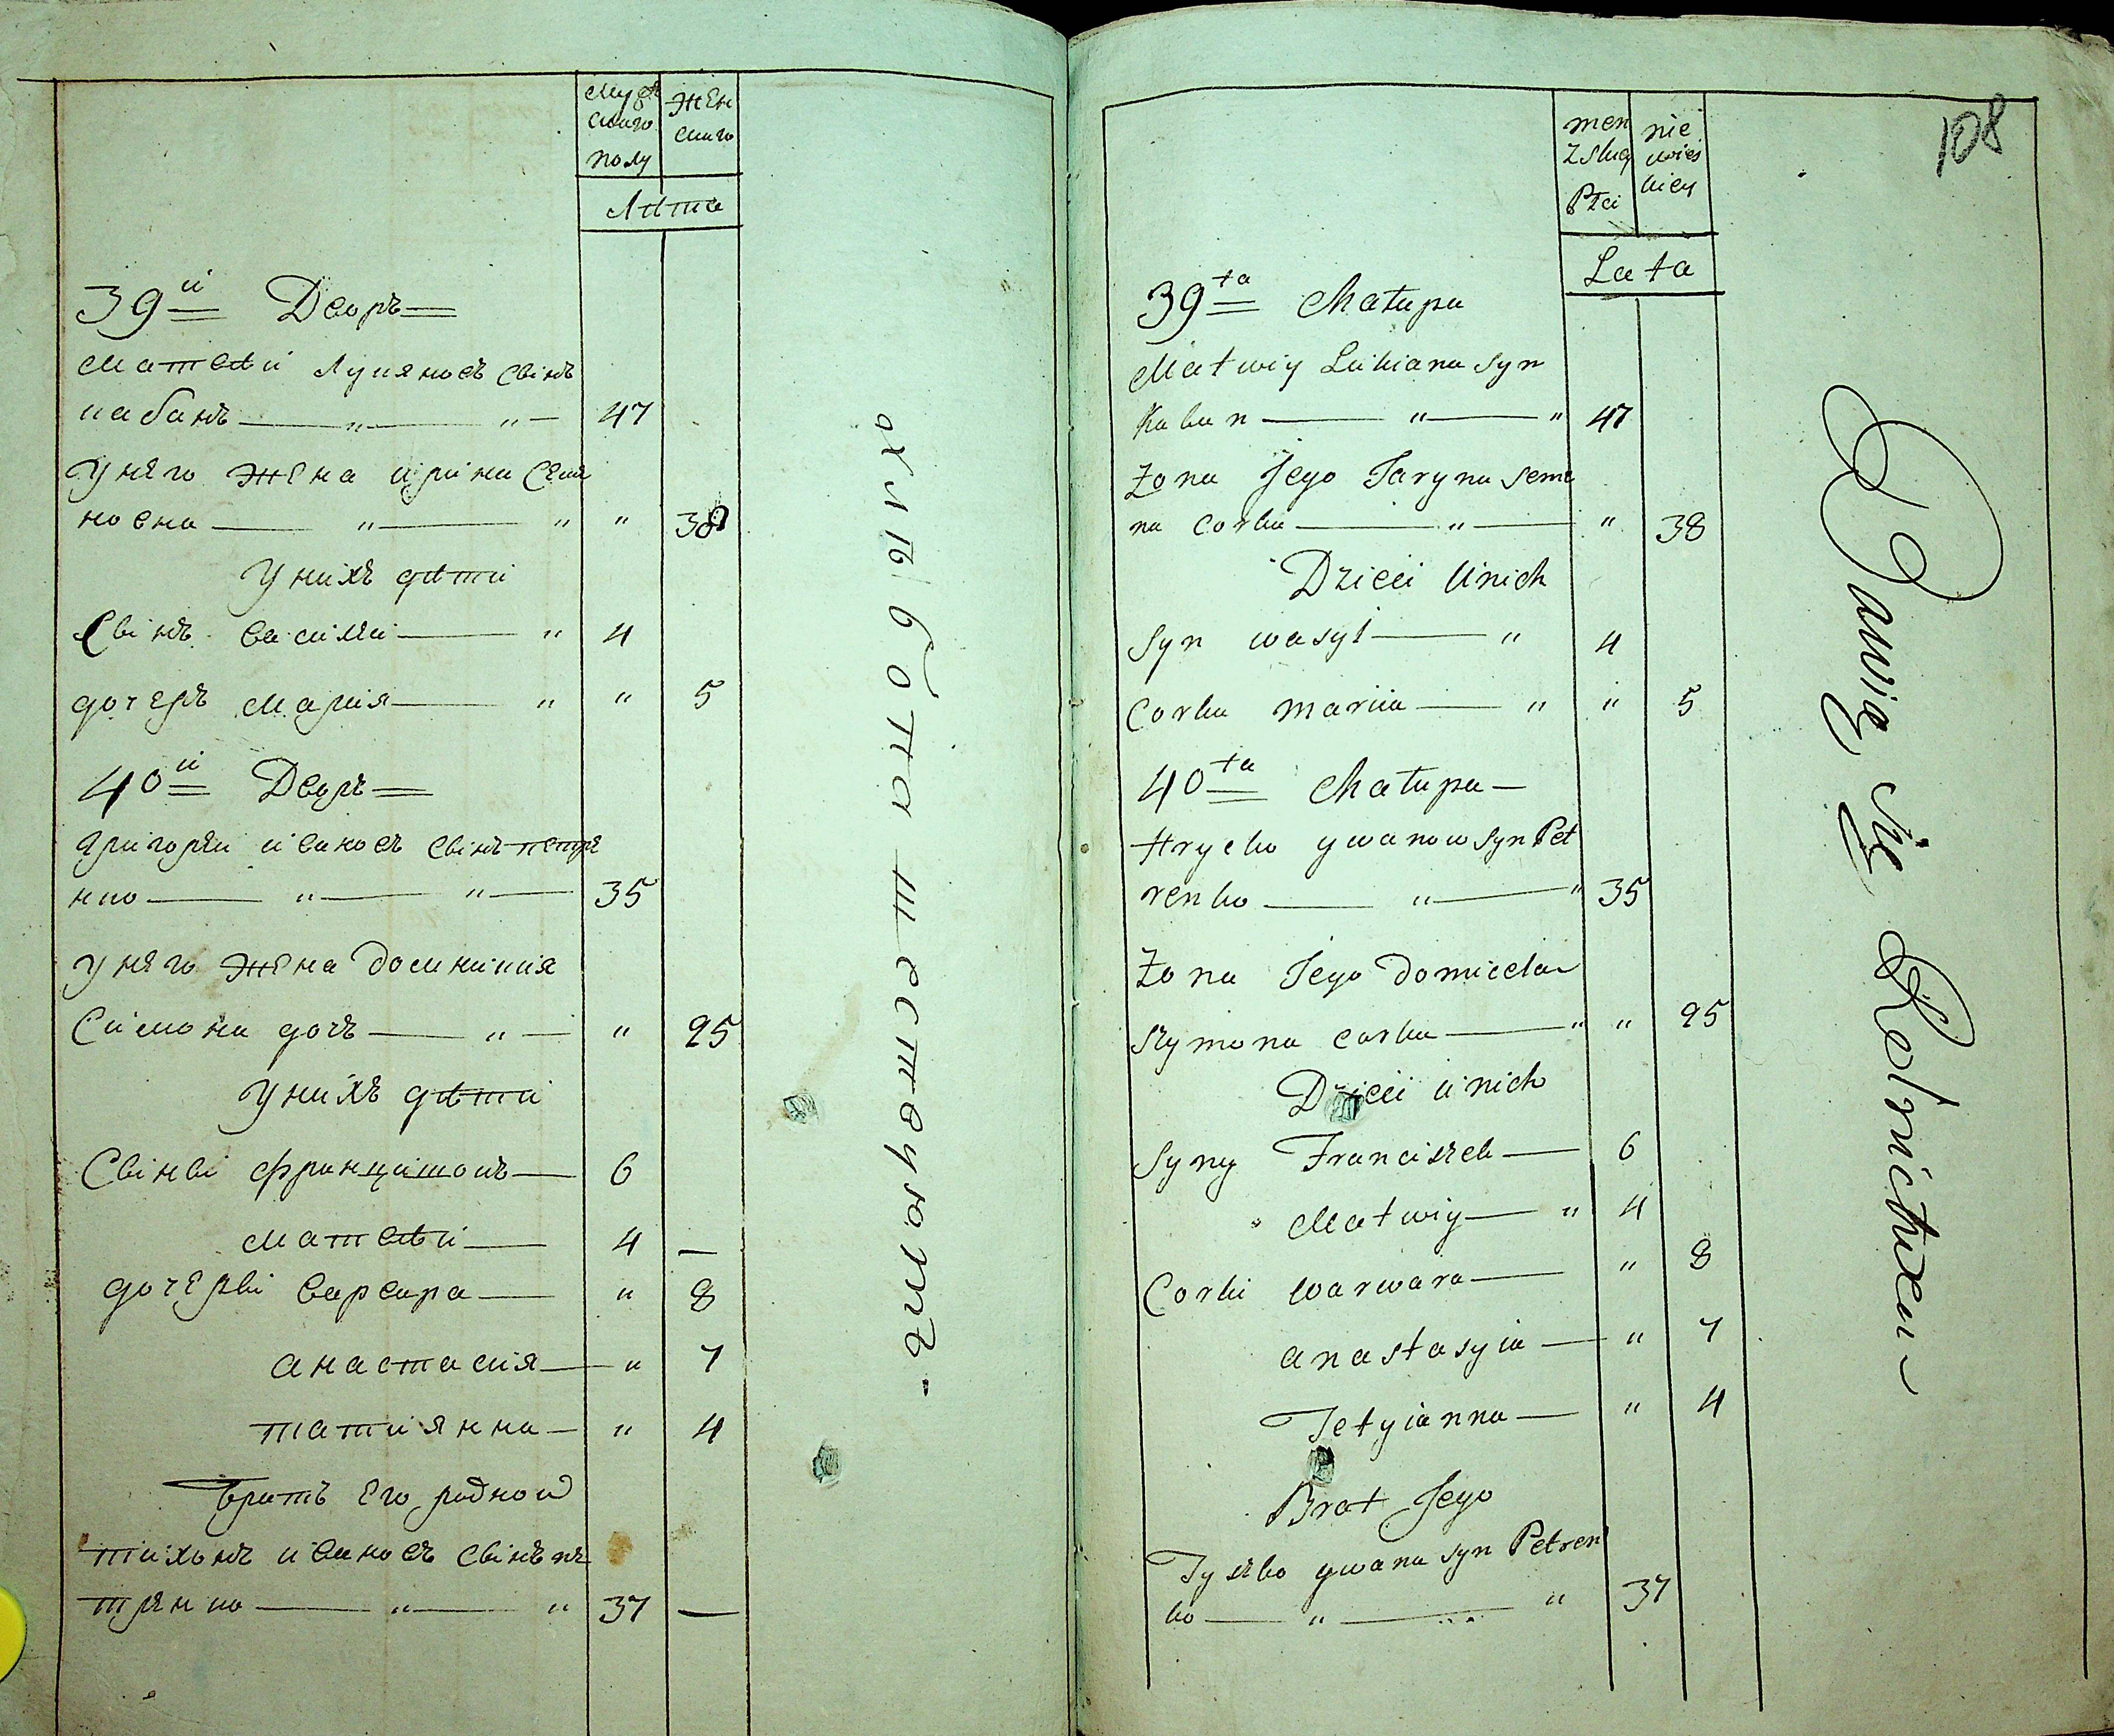 Мужскаго полу
Женскаго
Лѣта
39й Дворъ
Матвѣй Лукяновъ Сынъ
кабанъ — " — " — 47
у него жена ирина Семе
новна — " — " " 38
у нихъ дѣти
Сынъ василей — " 4
дочерь Мария — " " 5
40й Дворъ
григорей ивановъ Сынъ петре
нко — " — " — 35
у него жена доминикия
Симона дочь — " — " 25
у нихъ дѣти
Сыны францишокъ — 6
матвѣй — 4 —
дочеры варвара — " 8
анастасия — " 7
татиянна — " 4
братъ его родной
тихонъ ивановъ Сынъ пе
тренко — " — " 37 —
ахлѣботпа шествуютъ
108
menzskiey Płci
niewieskiey
Lata
39ta Chałupa
Matwiy Lukiana syn
Kaban — " — " 47
Żona Jego Jaryna Seme
na Corka — " — " 38
Dzieci Unich
Syn wasyl — " 4
Corka mariia — " " 5
40ta Chałupa —
Hrycko ywanow syn Pet
renko — " — " 35
Żona Jego Domicela
Szymona Corka — " " 25
Dzieci Unich
Syny Franciszek — 6
Matwiy — " 4
Corki warwara — " 8
anastasyia — " 7
Tetyianna — " 4
Brat Jego
Tyszko ywana syn Petren
ko — " — " 37
Bawią się Rolnictwem